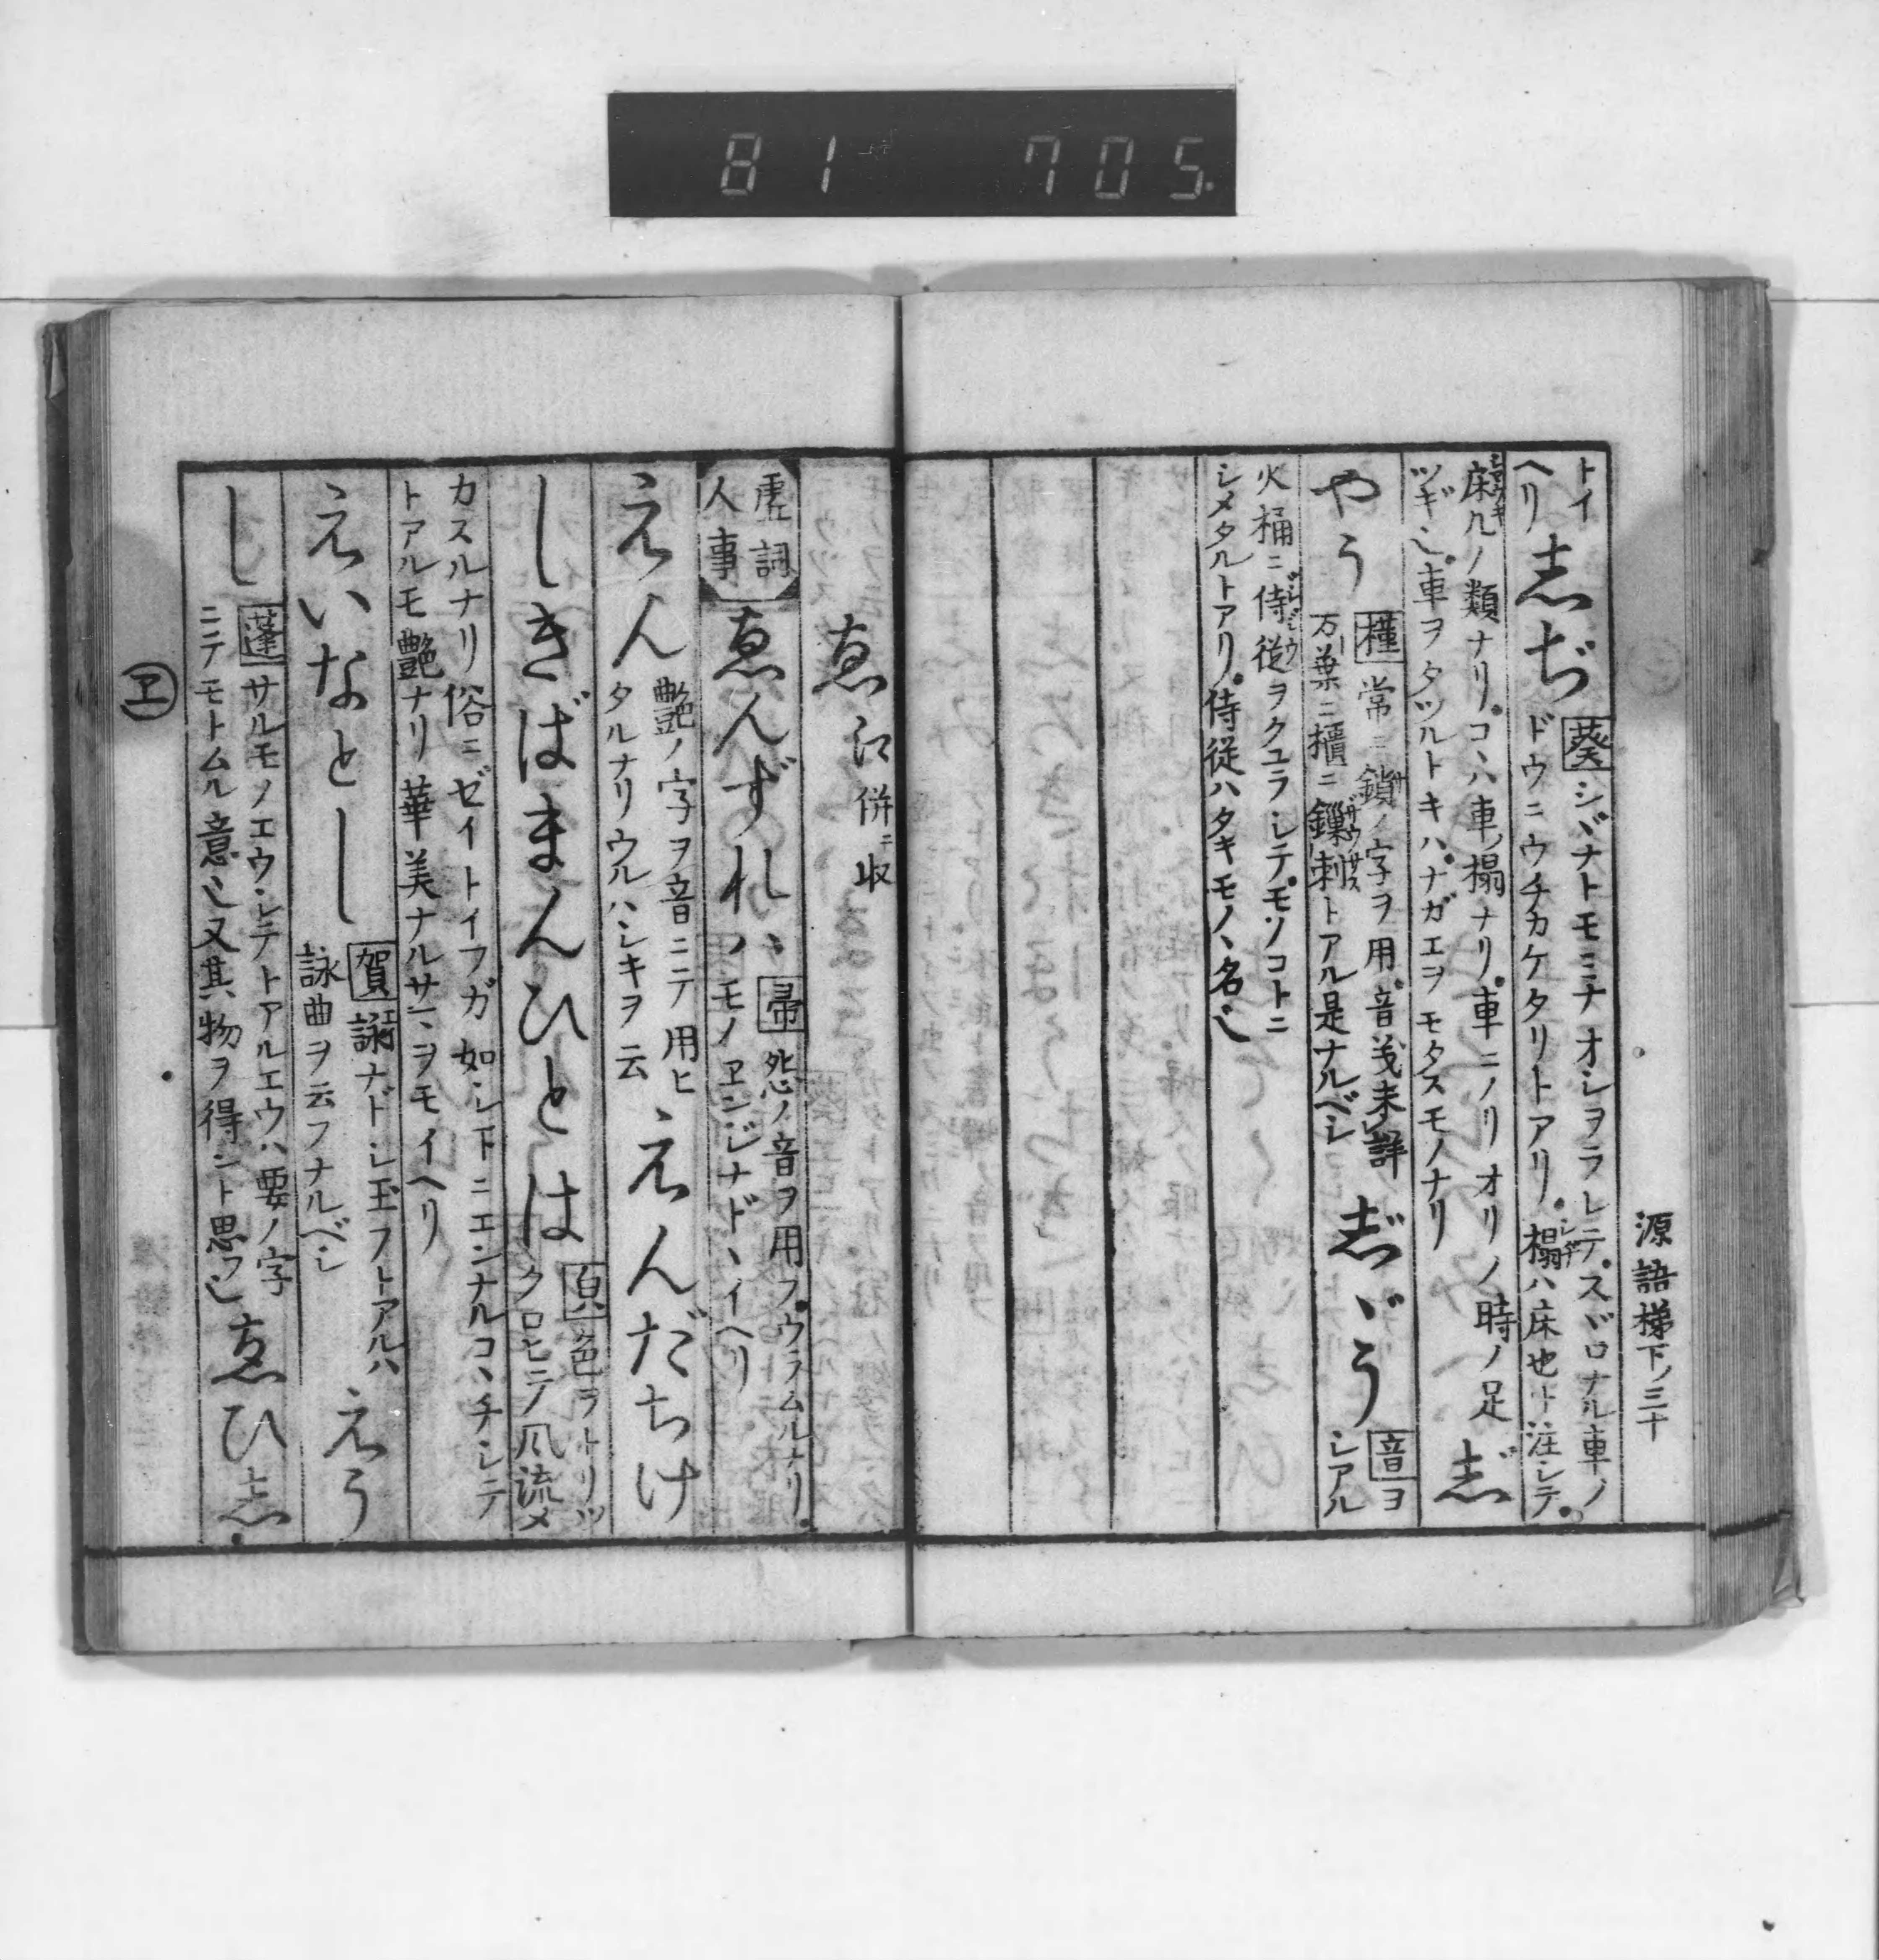 81 705
源語梯下ノ三十
トイ
ヘリ
志ぢ
葵シヾナトモミナオシヲラレテ。スヾロナル車ノ
ドウニウチカケタリトアリ。榻ハ床也ト注シテ。
床几ノ類ナリ。コヽハ車ノ榻ナリ。車ニノリオリノ時ノ足
ツギ也。車ヲタツルトキハ。ナガエヲモタスモノナリ
じ
やう
槿常ニ鎖ノ字ヲ用。音義未詳
万葉ニ櫃ニ鏁刺トアル是ナルベシ
じヾう
音ヨ
シアル
火桶ニ侍従ヲクユラシテ。モノコトニ
シメタルトアリ。侍従ハタキモノヽ名也
ゑ
江併ニ収
虚詞
人事
ゑんずれハ
帚怨ノ音ヲ用フ。ウラムルナリ。
モノヱンジナドヽイヘリ
えん
艶ノ字ヲ音ニテ用ヒ
タルナリウルハシキヲ云
えんだちけ
しきばまんひとは
色ヲトリツ
クロヒテ風流メ
カスルナリ俗ニゼイトイフガ如シ下ニエンナルコヽチシテ
トアルモ艶ナリ華美ナルサマヲモイヘリ
えいなとし
賀詠ナドシ玉フトアルハ
詠曲ヲ云フナルベシ
えう
し
蓬サルモノエウシテトアルエウハ要ノ字
ニテモトムル意也又其物ヲ得ント思フ也
ゑひ志
ヱ